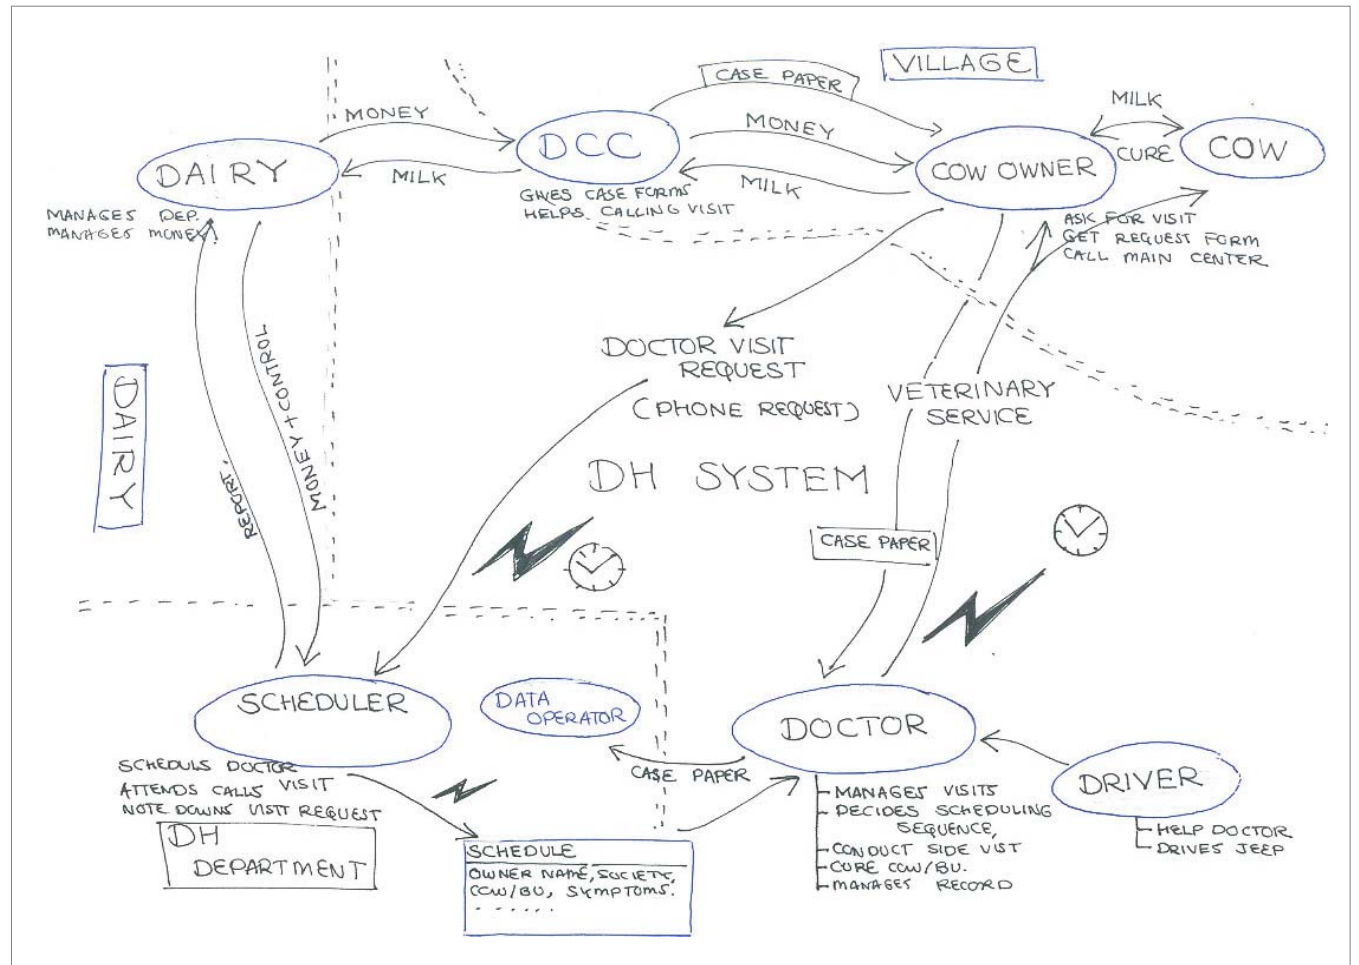 VILLAGE
CASE PAPER
MONEY
DAIRY
MILK
MANAGES DEP.
MANAGES MONEY.
DCC
GIVES CASE FORMS
HELPS CALLING VISIT
MONEY
MILK
COW OWNER
MILK
CURE
COW
ASK FOR VISIT
GET REQUEST FORM
CALL MAIN CENTER
DAIRY
REPORT.
MONEY + CONTROL
DOCTOR VISIT
REQUEST
(PHONE REQUEST)
VETERINARY
SERVICE
DH SYSTEM
CASE PAPER
SCHEDULER
SCHEDULS DOCTOR
ATTENDS CALLS VISIT
NOTE DOWNS VISIT REQUEST
DH
DEPARTMENT
DATA
OPERATOR
CASE PAPER
SCHEDULE
OWNER NAME, SOCIETY,
COW/BU, SYMPTOMS.
.......
DOCTOR
MANAGES VISITS
DECIDES SCHEDULING
SEQUENCE,
CONDUCT SIDE VIST
CURE COW/BU.
MANAGES RECORD
DRIVER
HELP DOCTOR
DRIVES JEEP